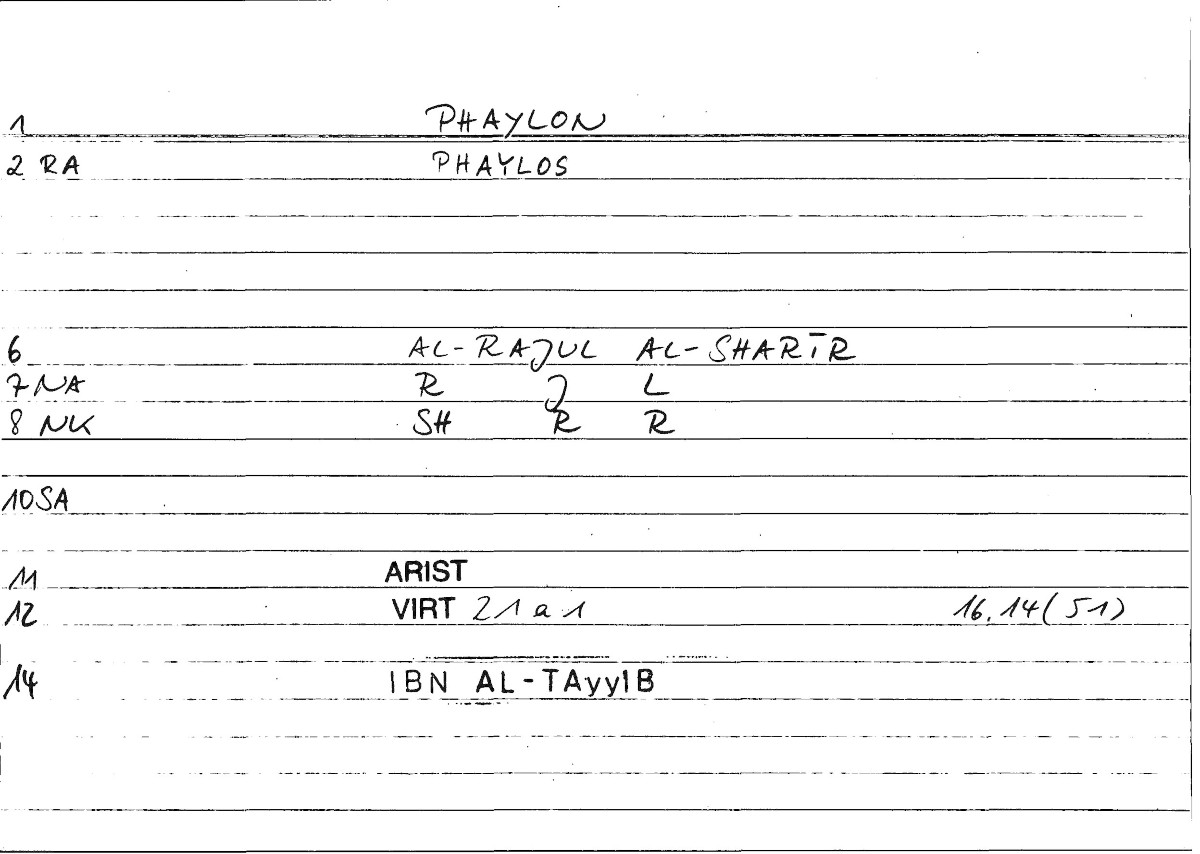 1 PHAYLON
2 RA PHAYLOS
6 AL-RAJUL AL-SHARĪR
7 NA R J L
8 NK SH R R
10 SA
11 ARIST
12 VIRT 21 a 1 16.14(51)
14 IBN AL-TAyyIB